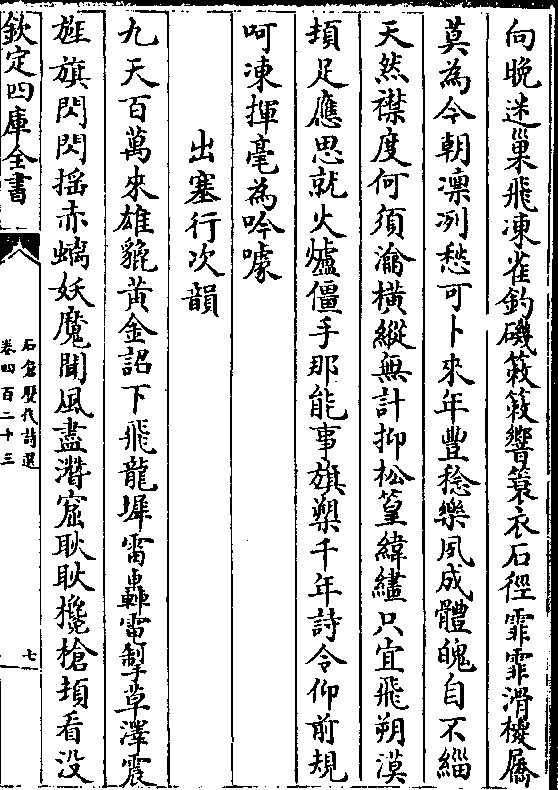 向晚迷巢飛凍雀釣磯簌簌響蓑衣石徑霏霏滑椶屩
莫為今朝凛冽愁可卜來年豐稔樂夙成體魄自不緇
天然襟度何須瀹橫縱無計抑松篁緯繣只宜飛朔漠
頓足應思就火爐僵手那能事旗槊千年詩令仰前規
呵凍揮毫為吟噱
出塞行次韻
九天百萬來雄貔黃金詔下飛龍墀雷轟電掣草澤震
旌旗閃閃搖赤螭妖魔聞風盡潛窟耿耿攙槍頓看没
欽定四庫全書
石倉歷代詩選
卷四百二十三
七